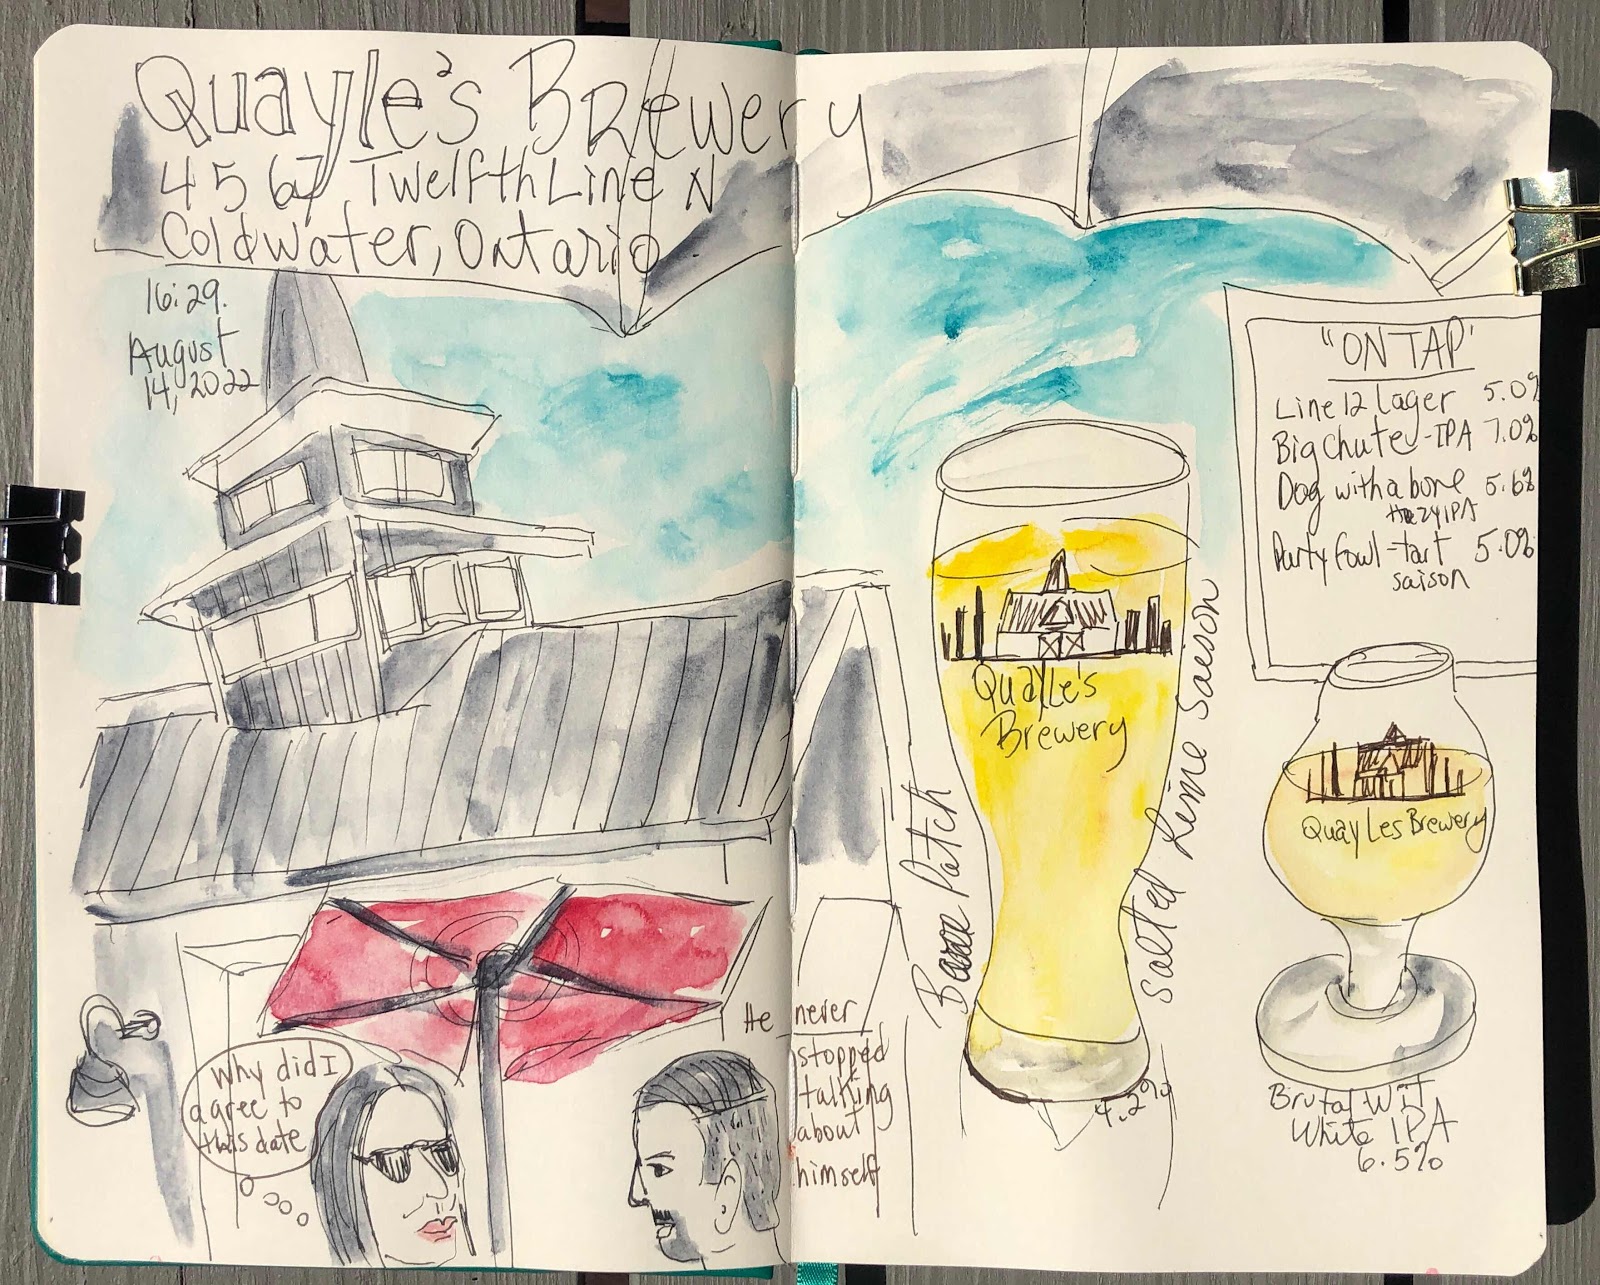 Quayle's Brewery
4567 Twelfth Line N
Coldwater, Ontario
16:29.
August
14, 2022
"ON TAP"
Line 12 Lager 5.0%
Big Chute-IPA 7.0%
Dog with a bone 5.6%
Hazy IPA
Party Fowl-tart 5.0%
saison
Quayle's
Brewery
Bare Patch
Salted Lime Saison
4.2%
Quayles Brewery
Brutal WIT
White IPA
6.5%
why did I
agree to
this date
He never
stopped
talking
about
himself